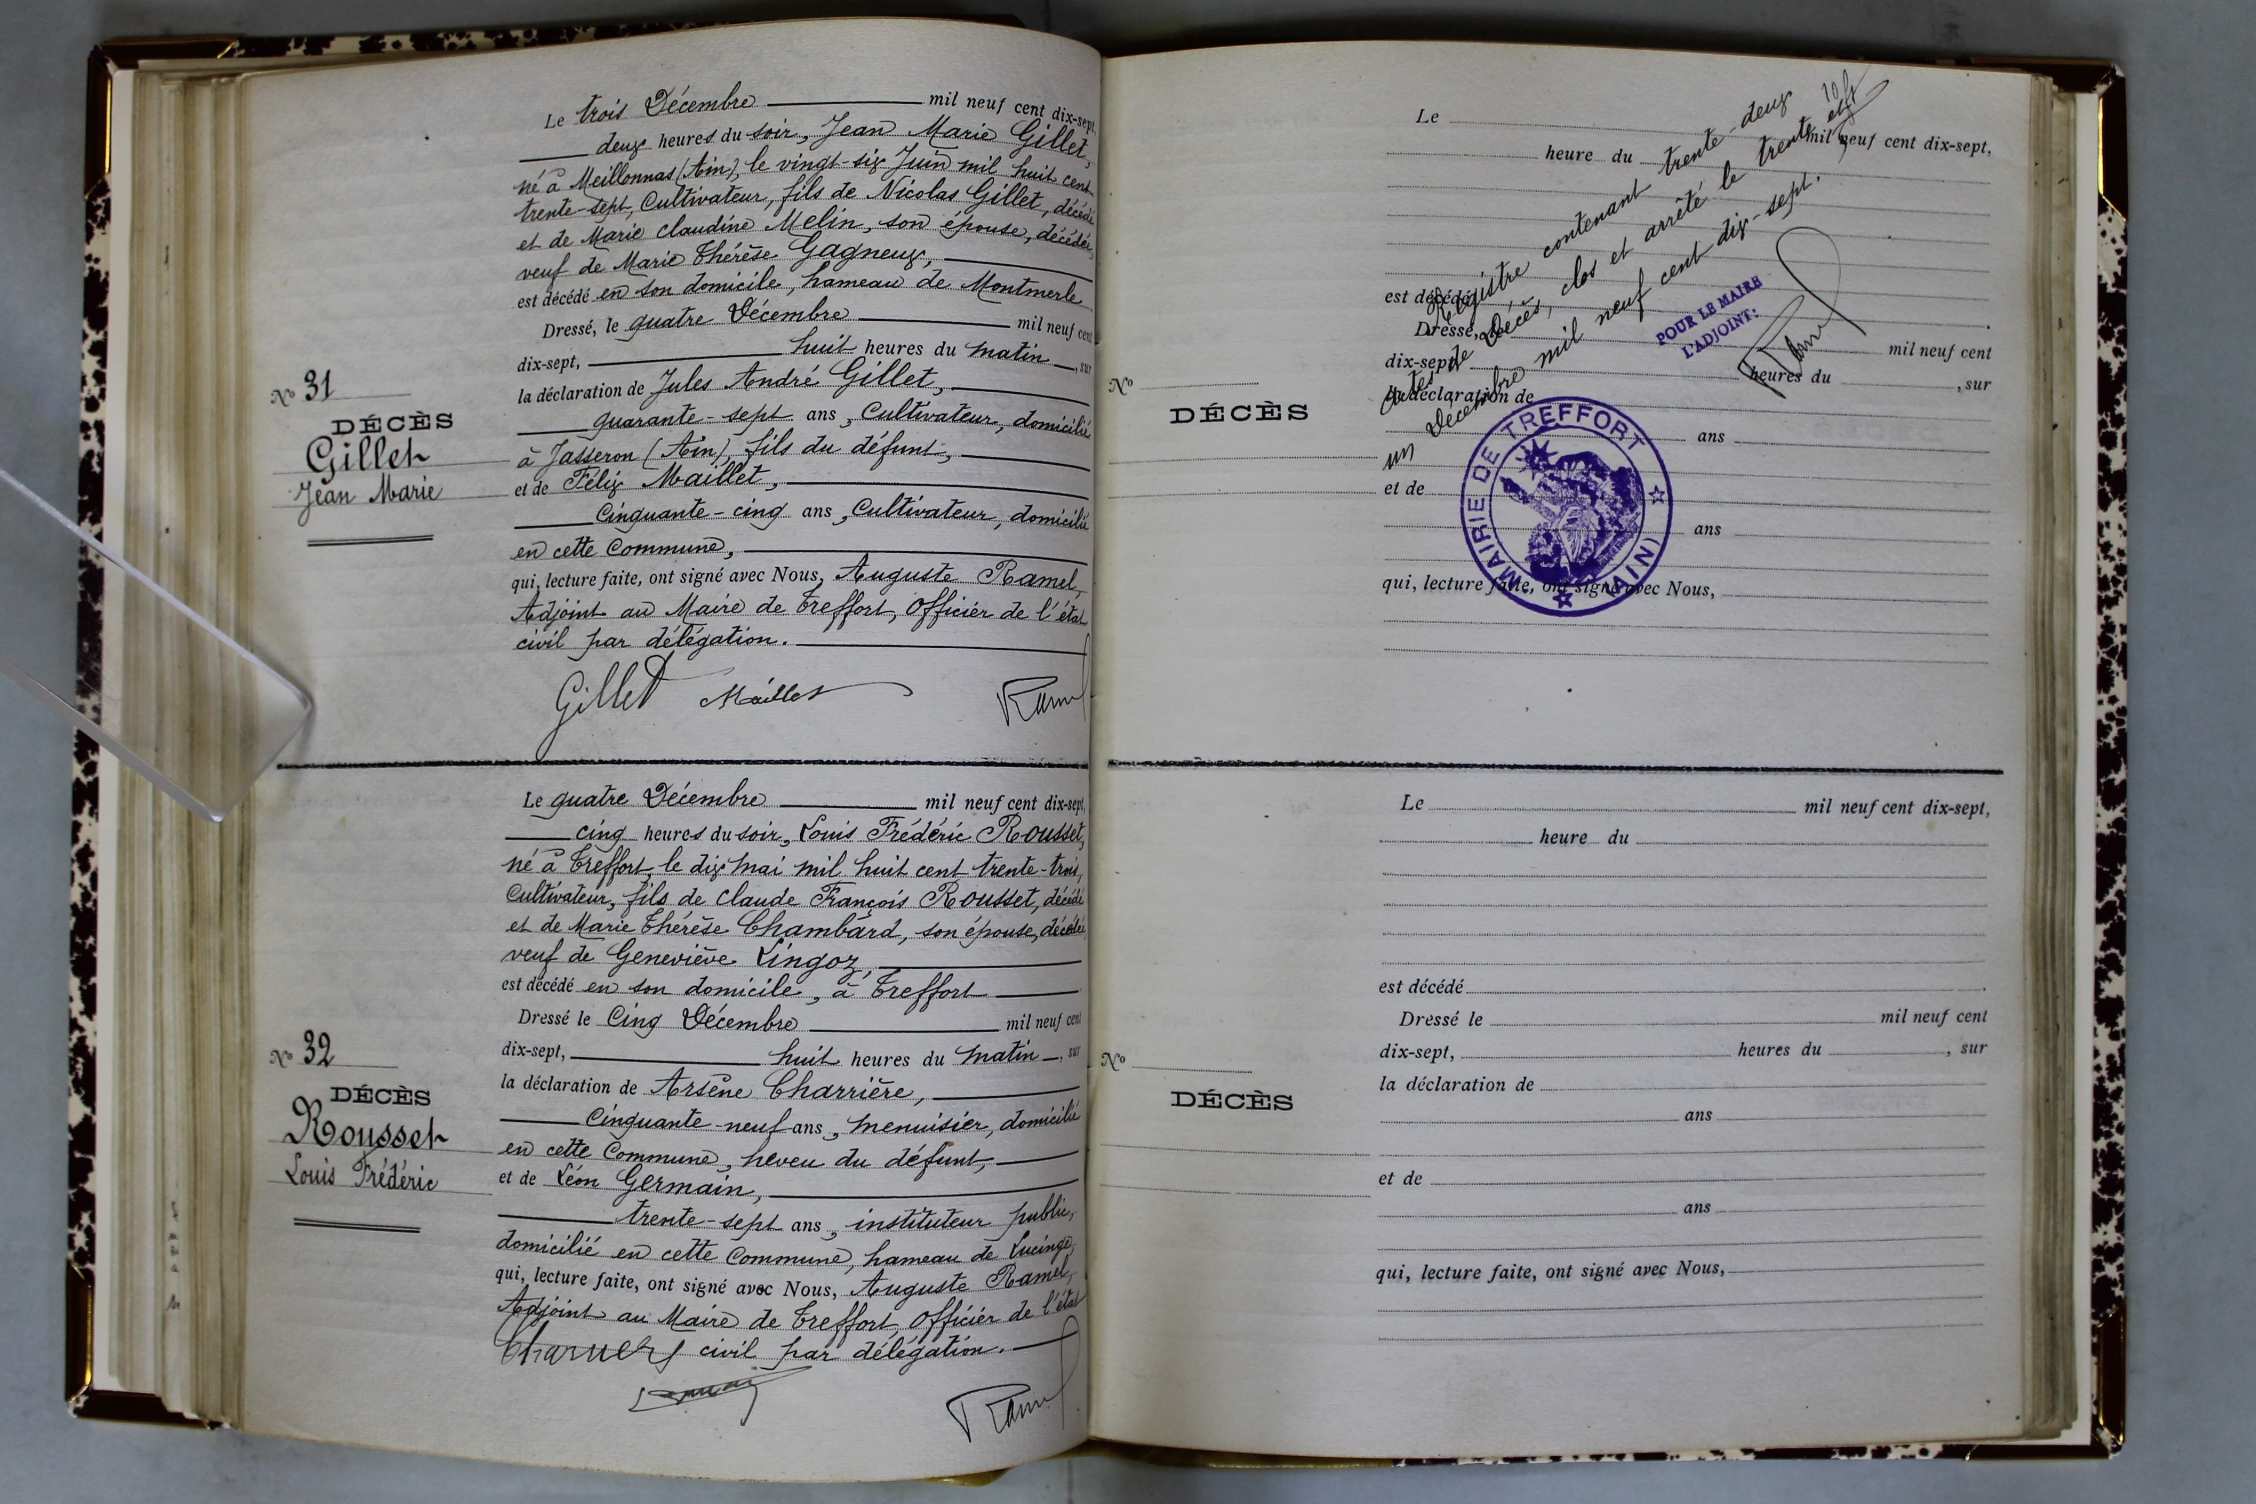 Le trois Décembre mil neuf cent dix-sept,
deux heures du soir, Jean Marie Gillet,
né à Meillonnas (Ain), le vingt-six Juin mil huit cent
trente-sept, Cultivateur, fils de Nicolas Gillet, décédé
et de Marie Claudine Melin, son épouse, décédée,
veuf de Marie Thérèse Gagneux,
est décédé en son domicile, hameau de Montmerle
Dressé, le quatre Décembre mil neuf cent
dix-sept, huit heures du matin, sur
la déclaration de Jules André Gillet,
quarante-sept ans, Cultivateur, domicilié
à Jasseron (Ain), fils du défunt,
et de Félix Maillet,
Cinquante-cinq ans, Cultivateur, domicilié
en cette Commune,
qui, lecture faite, ont signé avec Nous, Auguste Ramel,
Adjoint au Maire de Treffort, Officier de l'état
civil par délégation.
Gillet Maillet Ramel
No 31
DÉCÈS
Gillet
Jean Marie
Le quatre Décembre mil neuf cent dix-sept,
cinq heures du soir, Louis Frédéric Rousset,
né à Treffort, le dix mai mil huit cent trente-trois,
Cultivateur, fils de Claude François Rousset, décédé
et de Marie Thérèse Chambard, son épouse, décédée,
veuf de Geneviève Lingoz,
est décédé en son domicile, à Treffort
Dressé le Cinq Décembre mil neuf cent
dix-sept, huit heures du matin, sur
la déclaration de Arsène Charrière,
Cinquante-neuf ans, menuisier, domicilié
en cette Commune, neveu du défunt,
et de Léon Germain,
trente-sept ans, instituteur public,
domicilié en cette Commune, hameau de Lucinge,
qui, lecture faite, ont signé avec Nous, Auguste Ramel,
Adjoint au Maire de Treffort, Officier de l'état
civil par délégation.
Ramel
No 32
DÉCÈS
Rousset
Louis Frédéric
Le mil neuf cent dix-sept,
heure du
est décédé
Dressé, le mil neuf cent
dix-sept, heures du , sur
la déclaration de
ans
et de
ans
qui, lecture faite, ont signé avec Nous,
No
DÉCÈS
Registre contenant trente-deux
actes de Décès, clos et arrêté le trente et
un Décembre mil neuf cent dix-sept.
POUR LE MAIRE
L'ADJOINT:
Ramel
MAIRIE DE TREFFORT (AIN)
Le mil neuf cent dix-sept,
heure du
est décédé
Dressé le mil neuf cent
dix-sept, heures du , sur
la déclaration de
ans
et de
ans
qui, lecture faite, ont signé avec Nous,
No
DÉCÈS